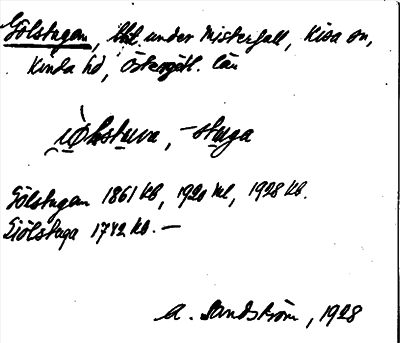 Sölstugan, lht. under Misterfall, Kisa sn,
Kinda hd, Östergötl. län
-stuga
Sölstugan 1861 kb, 1920 ml, 1928 kb.
Siölstuga 1742 kb. —
A. Sandström, 1928